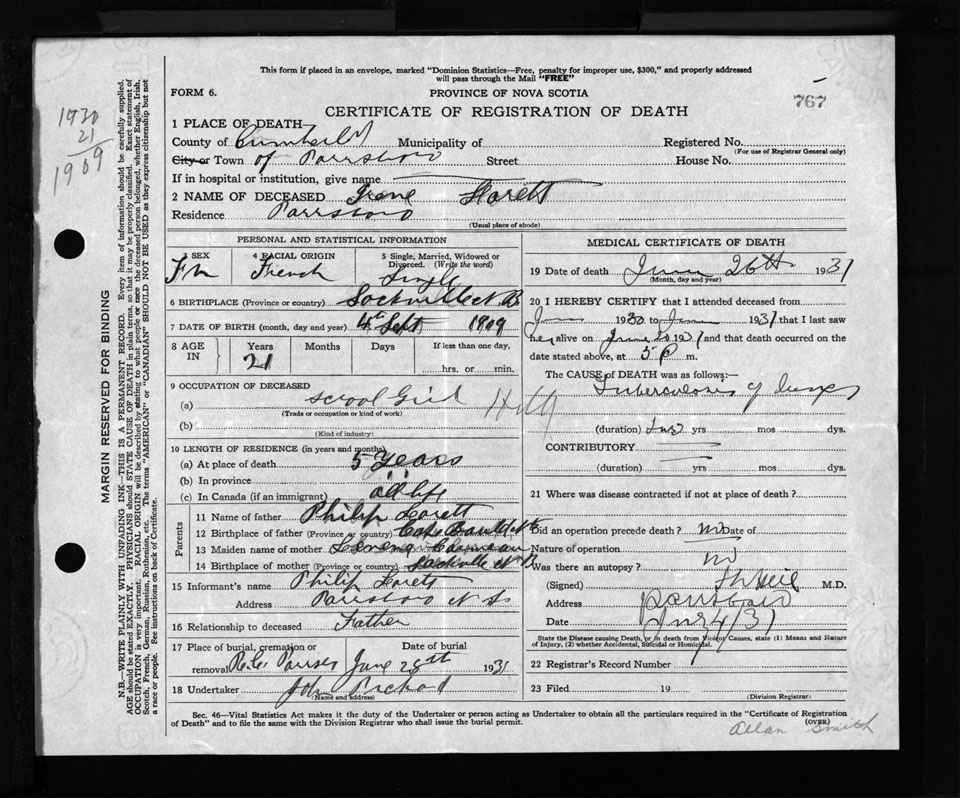 This form if placed in an envelope, marked "Dominion Statistics—Free, penalty for improper use, $300," and properly addressed
will pass through the Mail "FREE"
FORM 6.
PROVINCE OF NOVA SCOTIA
767
CERTIFICATE OF REGISTRATION OF DEATH
1930
21
1909
1 PLACE OF DEATH
County of Cumberl'd Municipality of Registered No.
(For use of Registrar General only)
City or Town of Parrsboro Street House No.
If in hospital or institution, give name
2 NAME OF DECEASED Irene
Residence Parrsboro
(Usual place of abode)
PERSONAL AND STATISTICAL INFORMATION
3 SEX 4 RACIAL ORIGIN 5 Single, Married, Widowed or
Divorced. (Write the word)
Fm French Single
6 BIRTHPLACE (Province or country) Sackville N.B
7 DATE OF BIRTH (month, day and year) 4th Sept 1909
8 AGE IN Years Months Days If less than one day,
21 hrs. or min.
9 OCCUPATION OF DECEASED
(a) School Girl
(Trade or occupation or kind of work)
(b)
(Kind of industry)
10 LENGTH OF RESIDENCE (in years and months)
(a) At place of death 5 years
(b) In province " "
(c) In Canada (if an immigrant) all life
Parents
11 Name of father Philip
12 Birthplace of father (Province or country)
13 Maiden name of mother
14 Birthplace of mother (Province or country) Sackville N B
15 Informant's name Philip
Address Parrsboro N S
16 Relationship to deceased Father
17 Place of burial, cremation or removal Date of burial
June 28th 1931
18 Undertaker John
(Name and address)
MEDICAL CERTIFICATE OF DEATH
19 Date of death June 26th 1931
(Month, day and year)
20 I HEREBY CERTIFY that I attended deceased from
1930 to 1931 that I last saw
her alive on June 20 1931 and that death occurred on the
date stated above, at 5 P m.
The CAUSE of DEATH was as follows:—
Tuberculosis of lungs
(duration) yrs mos dys.
CONTRIBUTORY
(duration) yrs mos dys.
21 Where was disease contracted if not at place of death?
Did an operation precede death? no Date of
Nature of operation
Was there an autopsy? no
(Signed) M.D.
Address Parrsboro
Date
State the Disease causing Death, or in death from Violent Causes, state (1) Means and Nature
of Injury, (2) whether Accidental, Suicidal or Homicidal.
22 Registrar's Record Number
23 Filed 19
(Division Registrar)
Sec. 46—Vital Statistics Act makes it the duty of the Undertaker or person acting as Undertaker to obtain all the particulars required in the "Certificate of Registration
of Death" and to file the same with the Division Registrar who shall issue the burial permit.
(OVER)
Allan Smith
MARGIN RESERVED FOR BINDING
N.B.—WRITE PLAINLY WITH UNFADING INK—THIS IS A PERMANENT RECORD. Every item of information should be carefully supplied.
AGE should be stated EXACTLY. PHYSICIANS should STATE CAUSE OF DEATH in plain terms, so that it may be properly classified. Exact statement of
OCCUPATION is very important. RACIAL ORIGIN will be described by stating to what people or race the deceased person belonged, whether English, Irish,
Scotch, French, German, Russian, Ruthenian, etc. The terms "AMERICAN" or "CANADIAN" SHOULD NOT BE USED as they express citizenship but not
a race or people. See instructions on back of Certificate.